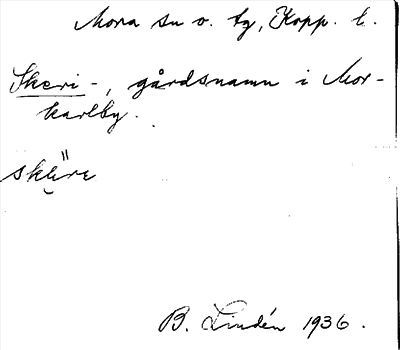 Mora sn o. by, Kopp. l.
Skeri-, gårdsnamn i Mor-
karlby.
B. Lindén 1936.